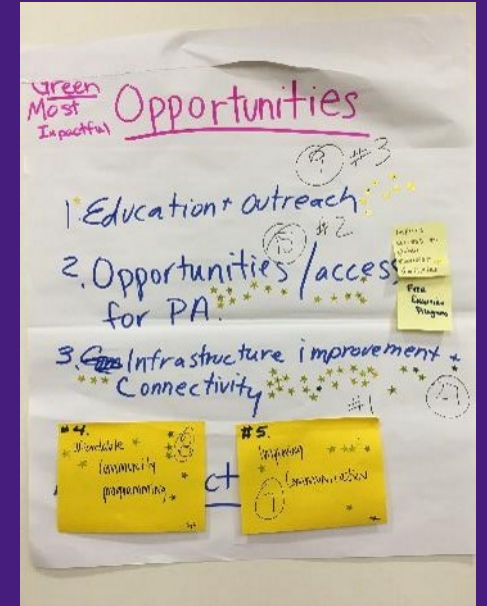 Green
Most
Impactful
Opportunities
#3
1. Education + Outreach
#2
2. Opportunities/access
for PA.
Free
Exercise
Programs
3. Infrastructure improvement +
Connectivity
#1
#4.
Affordable
Community
programming
#5.
Improving
Communication
ct